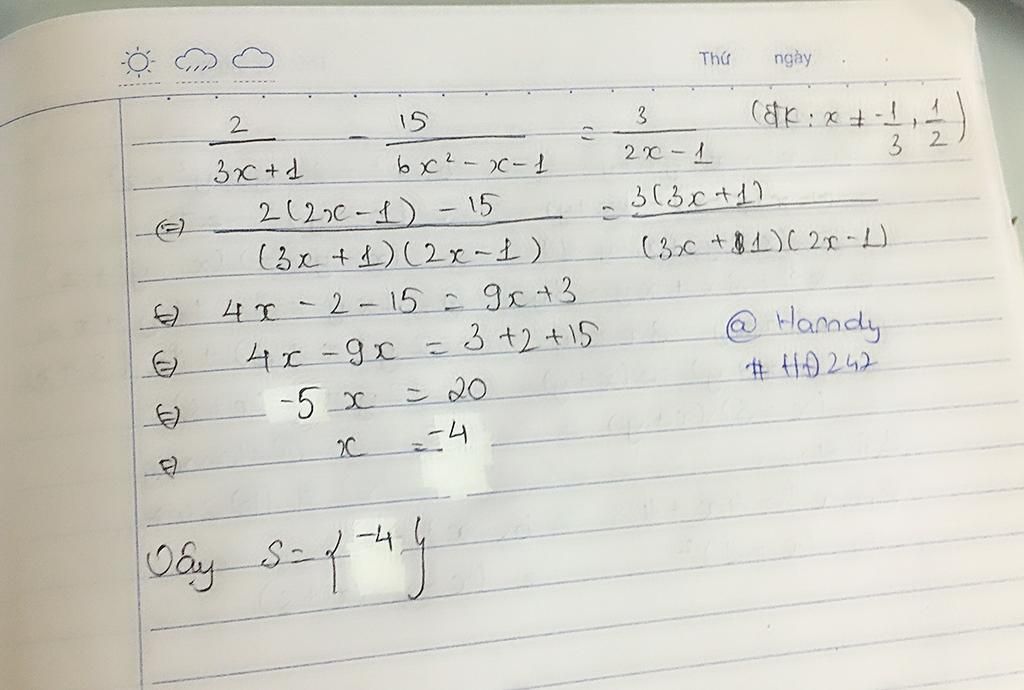 Thứ ngày
2/(3x+1) - 15/(6x² - x - 1) = 3/(2x - 1) (đk : x ≠ -1/3, 1/2)
(=) (2(2x - 1) - 15)/((3x + 1)(2x - 1)) = 3(3x + 1)/((3x + 1)(2x - 1))
(=) 4x - 2 - 15 = 9x + 3
(=) 4x - 9x = 3 + 2 + 15
@ Hamdy
# HD242
(=) -5 x = 20
(=) x = -4
Vậy S = { -4 }